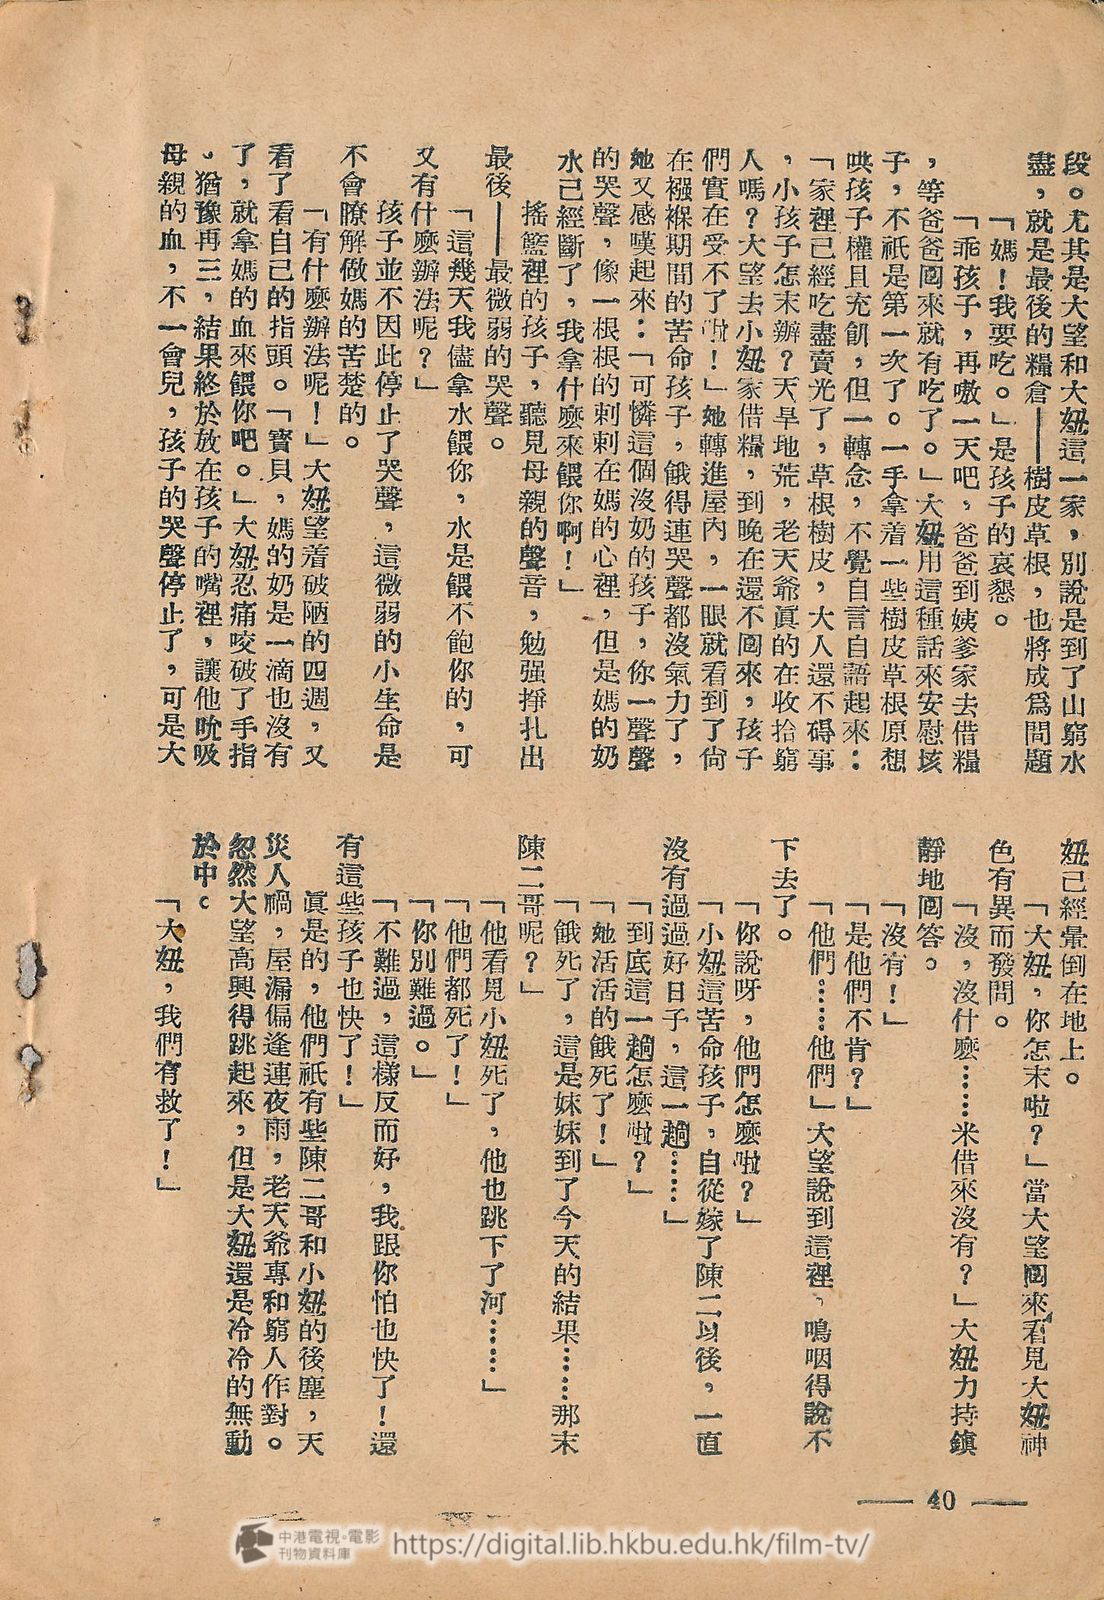 段。尤其是大望和大妞這一家，別說是到了山窮水
盡，就是最後的糧倉——樹皮草根，也將成爲問題
「媽！我要吃。」是孩子的哀懇。
「乖孩子，再噭一天吧，爸爸到姨爹家去借糧
，等爸爸囘來就有吃了。」大妞用這種話來安慰垓
子，不祇是第一次了。一手拿着一些樹皮草根原想
哄孩子權且充飢，但一轉念，不覺自言自語起來：
「家裡已經吃盡賣光了，草根樹皮，大人還不碍事
，小孩子怎末辦？天旱地荒，老天爺眞的在收拾窮
人嗎？大望去小妞家借糧，到晚在還不囘來，孩子
們實在受不了啦！」她轉進屋內，一眼就看到了尙
在襁褓期間的苦命孩子，餓得連哭聲都沒氣力了，
她又感嘆起來：「可憐這個沒奶的孩子，你一聲聲
的哭聲，像一根根的刺刺在媽的心裡，但是媽的奶
水己經斷了，我拿什麼來餵你啊！」
搖籃裡的孩子，聽見母親的聲音，勉强掙扎出
最後——最微弱的哭聲。
「這幾天我儘拿水餵你，水是餵不飽你的，可
又有什麼辦法呢？」
孩子並不因此停止了哭聲，這微弱的小生命是
不會瞭解做媽的苦楚的。
「有什麼辦法呢！」大妞望着破陋的四週，又
看了看自己的指頭。「寶貝，媽的奶是一滴也沒有
了，就拿媽的血來餵你吧。」大妞忍痛咬破了手指
，猶豫再三，結果終於放在孩子的嘴裡，讓他吮吸
母親的血，不一會兒，孩子的哭聲停止了，可是大
妞己經暈倒在地上。
「大妞，你怎末啦？」當大望囘來看見大妞神
色有異而發問。
「沒，沒什麼……米借來沒有？」大妞力持鎮
靜地囘答。
「沒有！」
「是他們不肯？」
「他們……他們」大望說到這裡，嗚咽得說不
下去了。
「你說呀，他們怎麼啦？」
「小妞這苦命孩子，自從嫁了陳二以後，一直
沒有過過好日子，這一趟……」
「到底這一趟怎麼啦？」
「她活活的餓死了！」
「餓死了，這是妹妹到了今天的結果……那末
陳二哥呢？」
「他看見小妞死了，他也跳下了河……」
「他們都死了！」
「你別難過。」
「不難過，這樣反而好，我跟你怕也快了！還
有這些孩子也快了！」
眞是的，他們祇有些陳二哥和小妞的後塵，天
災人禍，屋漏偏逢連夜雨，老天爺專和窮人作對。
忽然大望高興得跳起來，但是大妞還是冷冷的無動
於中。
「大妞，我們有救了！」
— 40 —
中港電視·電影
刊物資料庫
https://digital.lib.hkbu.edu.hk/film-tv/